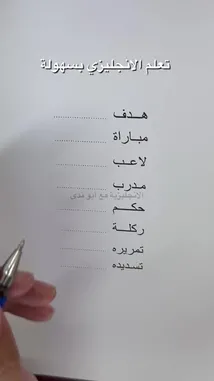 تعلم الانجليزي بسهولة
هـدف ........................
مبـاراة ........................
لاعـب ........................
مـدرب ........................
الانجليزية مع ابو عدي
حكـــم ........................
ركلـــة ........................
تمريره ........................
تسديده ........................